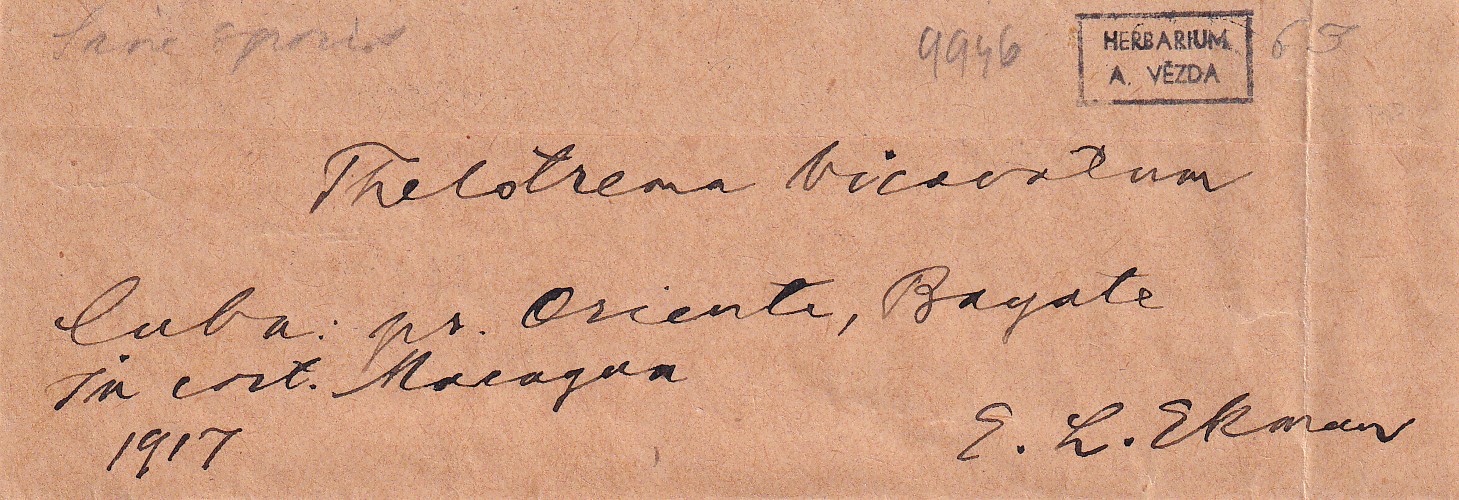 9946
HERBARIUM
A. VĚZDA
63
Thelotrema bicavatum
Cuba: pr. Oriente, Bayate
in cort. Macagua
1917
E. L. Ekman